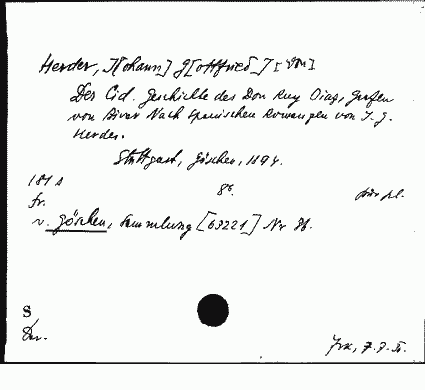 Herder, J[ohann] G[ottfried] [von]
Der Cid. Geschichte des Don Ruy Diaz, Grafen
von Bivar Nach Spanischen Romanzen von J. G.
Herder.
Stuttgart, Göschen, 1894.
181 s 8°.
fr.
v. Göschen, Sammlung [63221] Nr 36.
S